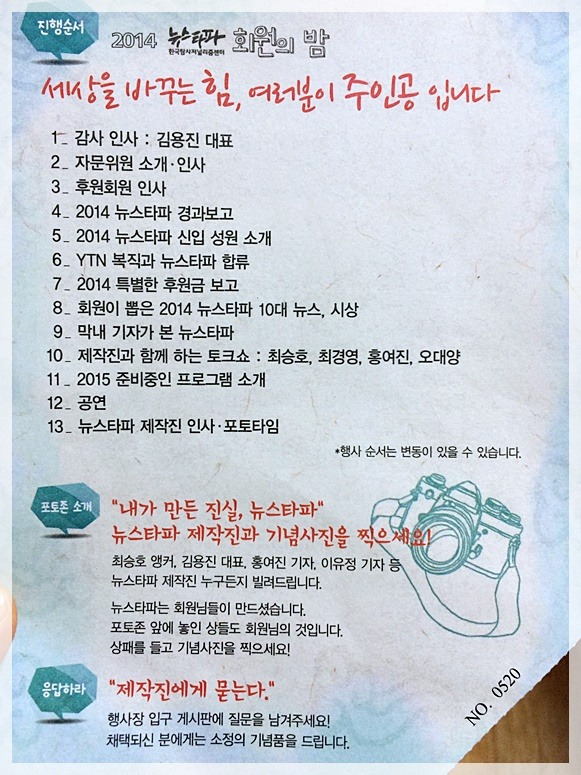 진행순서
2014 뉴스타파 회원의 밤
한국탐사저널리즘센터
세상을 바꾸는 힘, 여러분이 주인공 입니다
1_ 감사 인사 : 김용진 대표
2_ 자문위원 소개·인사
3_ 후원회원 인사
4_ 2014 뉴스타파 경과보고
5_ 2014 뉴스타파 신입 성원 소개
6_ YTN 복직과 뉴스타파 합류
7_ 2014 특별한 후원금 보고
8_ 회원이 뽑은 2014 뉴스타파 10대 뉴스, 시상
9_ 막내 기자가 본 뉴스타파
10_ 제작진과 함께 하는 토크쇼 : 최승호, 최경영, 홍여진, 오대양
11_ 2015 준비중인 프로그램 소개
12_ 공연
13_ 뉴스타파 제작진 인사·포토타임
*행사 순서는 변동이 있을 수 있습니다.
포토존 소개
"내가 만든 진실, 뉴스타파"
뉴스타파 제작진과 기념사진을 찍으세요!
최승호 앵커, 김용진 대표, 홍여진 기자, 이유정 기자 등
뉴스타파 제작진 누구든지 빌려드립니다.
뉴스타파는 회원님들이 만드셨습니다.
포토존 앞에 놓인 상들도 회원님의 것입니다.
상패를 들고 기념사진을 찍으세요!
응답하라
"제작진에게 묻는다."
행사장 입구 게시판에 질문을 남겨주세요!
채택되신 분에게는 소정의 기념품을 드립니다.
NO. 0520